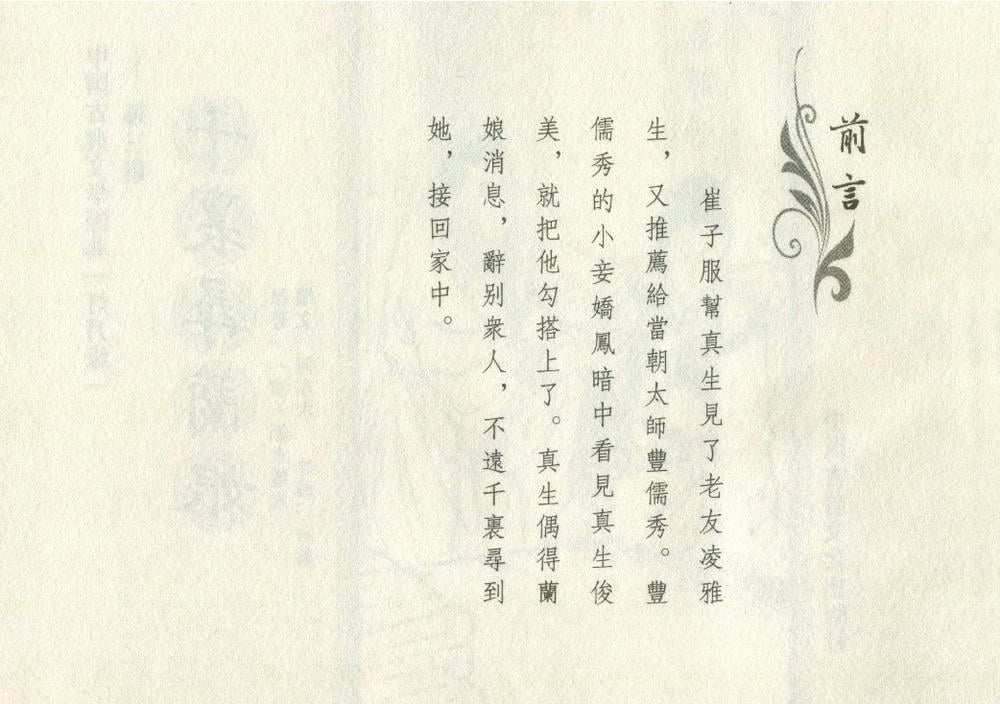 前言
崔子服幫真生見了老友凌雅
生，又推薦給當朝太師豐儒秀。豐
儒秀的小妾嬌鳳暗中看見真生俊
美，就把他勾搭上了。真生偶得蘭
娘消息，辭别衆人，不遠千裏尋到
她，接回家中。